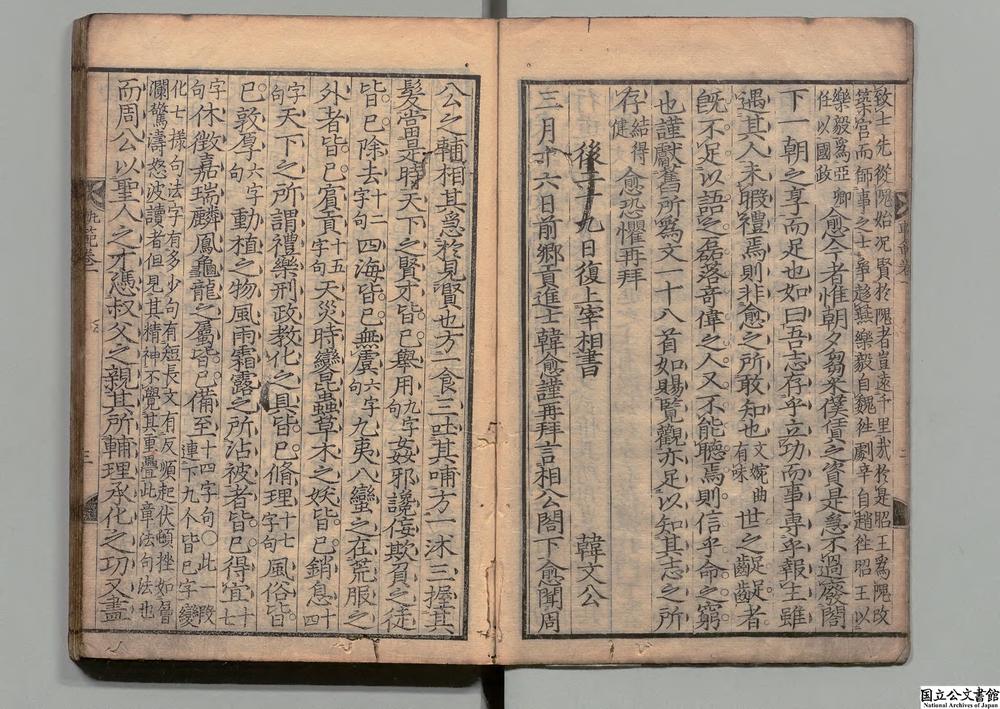 致士先從隗始况賢於隗者豈遠千里哉於是昭王爲隗改
築宮而師事之士爭趨燕樂毅自魏徃劇辛自趙徃昭王以
樂毅爲亞卿
任以國政
愈今者惟朝夕芻米僕賃之資是急不過廢閤
下一朝之享而足也如曰吾志存乎立功而事專乎報主雖
遇其人未暇禮焉則非愈之所敢知也文婉曲有味世之齪齪者
既不足以語之磊落奇偉之人又不能聽焉則信乎命之窮
也謹獻舊所爲文一十八首如賜覽觀亦足以知其志之所
存結得健愈恐懼再拜
後二十九日復上宰相書 韓文公
三月十六日前鄉貢進士韓愈謹再拜言相公閤下愈聞周
二
公之輔相其爲於見賢也方一食三吐其哺方一沐三握其
髮當是時天下之賢才皆已舉用九字句姦邪讒佞欺負之徒
皆已除去十二字句四海皆已無虞六字句九夷八蠻之在荒服之
外者皆已賓貢十五字句天災時變昆蟲草木之妖皆已銷息十四
字句天下之所謂禮樂刑政教化之具皆已脩理十七字句風俗皆
已敦厚六字句動植之物風雨霜露之所沾被者皆已得宜十七
字句休徵嘉瑞麟鳳龜龍之屬皆已備至十四字句○此一段連下九个皆已字變
化七樣句法字有多少句有短長文有反順起伏頓挫如層
瀾驚濤怒波讀者但見其精神不覺其重疊此章法句法也
而周公以聖人之才憑叔父之親其所輔理承化之功又盡
軌範卷一
三
国立公文書館
National Archives of Japan